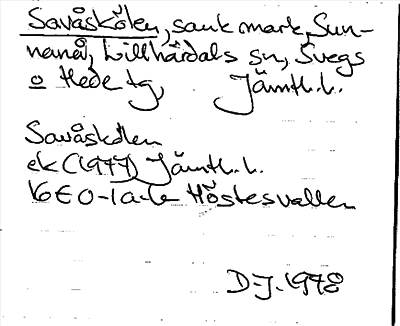 Savåskölen, sank mark, Sun-
nanå, Lillhärdals sn, Svegs
o Hede tg, Jämtl. l.
Savåskölen
ek (1977) Jämtl. l.
16E 0-1a-b Höstesvallen
D-J. 1978